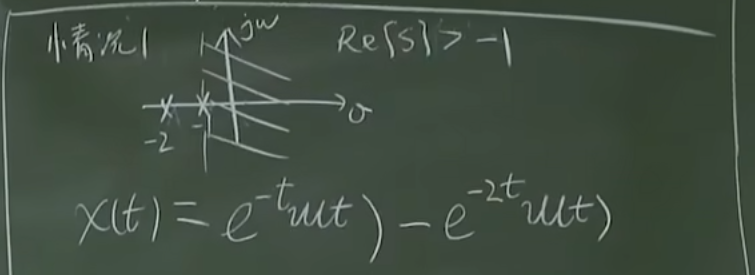 情况1
jω
Re{s} > -1
-2 -1 σ
x(t) = e^{-t}u(t) - e^{-2t}u(t)